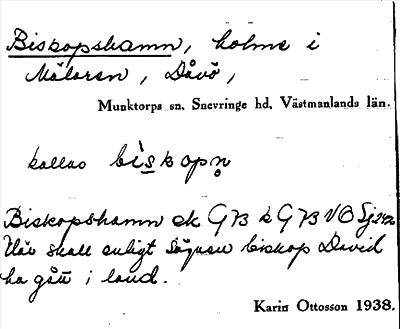 Biskopshamn, holme i
Mälaren, Dåvö,
Munktorps sn, Snevringe hd, Västmanlands län.
kallas biskopn
Biskopshamn ek G 73 k G 73 V O Sj
Här skall enligt sägnen biskop David
ha gått i land.
Karin Ottosson 1938.